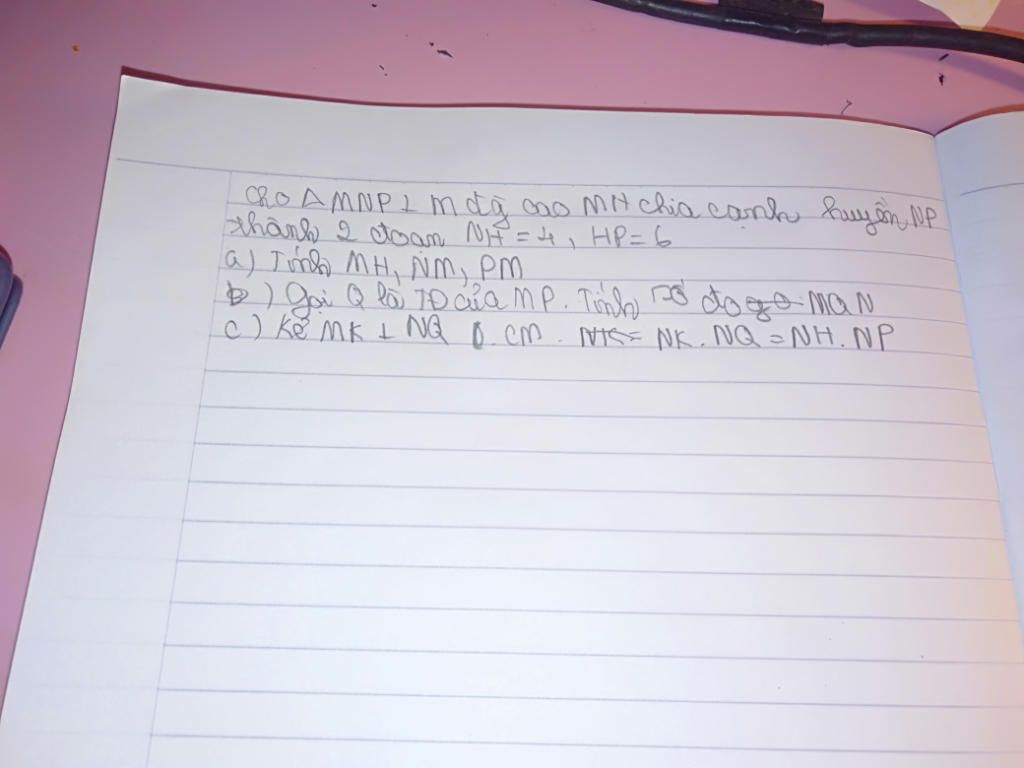 Cho △ MNP ⊥ M đg cao MH chia cạnh huyền NP
thành 2 đoạn NH = 4, HP = 6
a) Tính MH, NM, PM
b) Gọi Q là TĐ của MP. Tính số đo go MQN
c) Kẻ MK ⊥ NQ. CM. NK. NQ = NH. NP